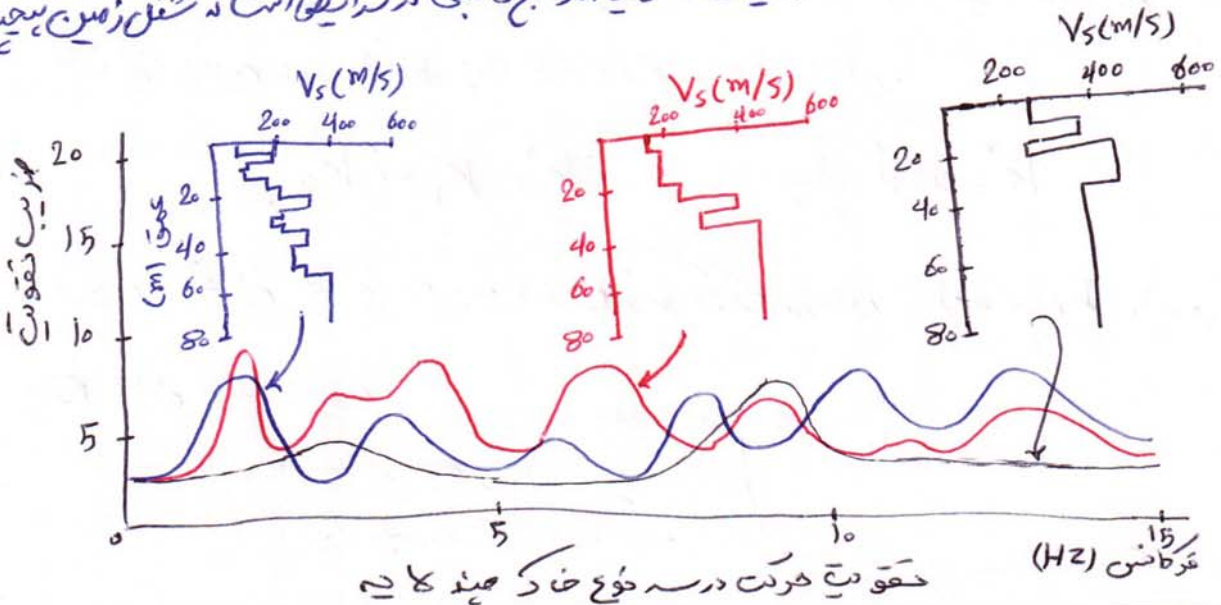 شکل زمین
Vs (m/s)
200 400 600
20
40
60
80
عمق (m)
Vs (m/s)
200 400 600
20
40
60
80
Vs (m/s)
200 400 600
20
40
60
80
ضریب تقویت
20
15
10
5
0 5 10 15
فرکانس (HZ)
تقویت حرکت در سه نوع خاک چند لایه